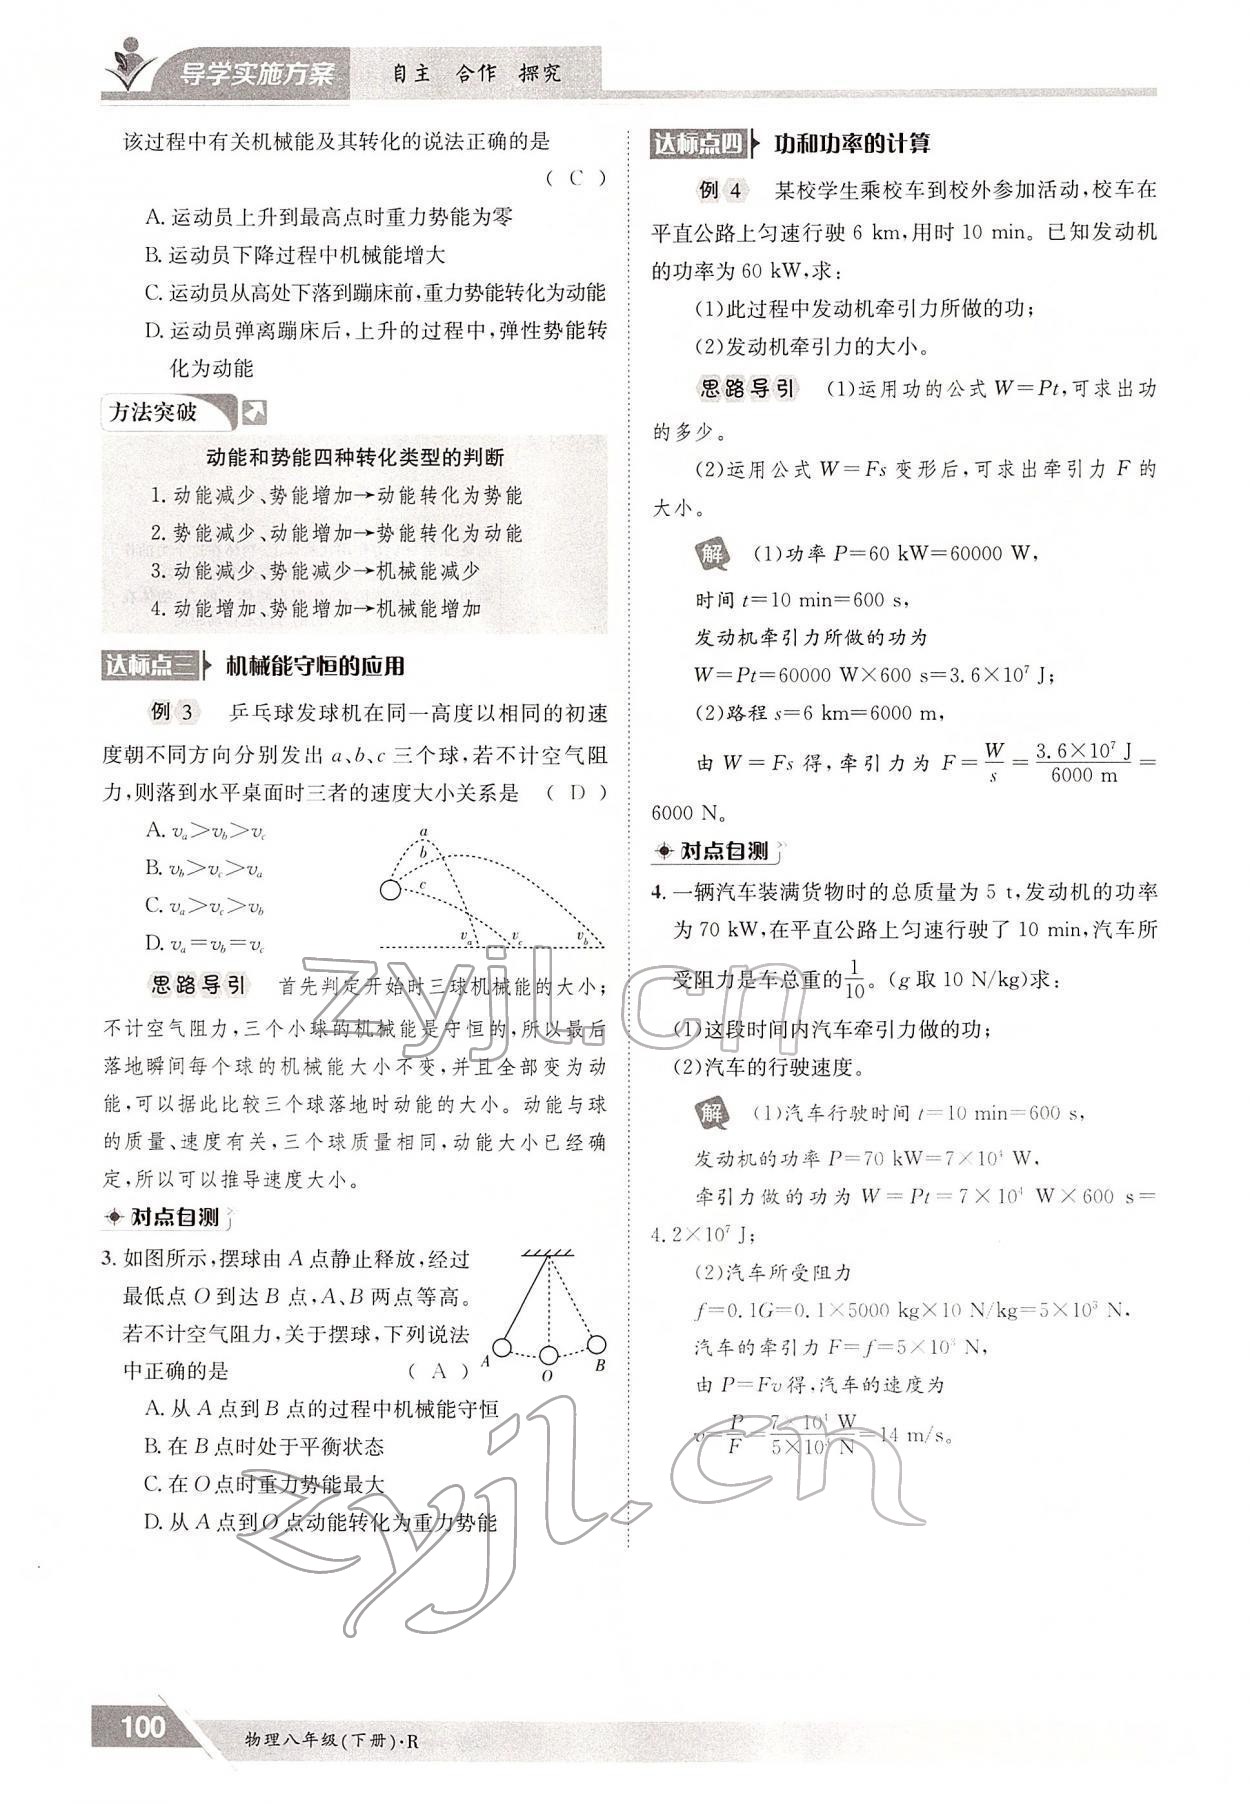 导学实施方案
自主 合作 探究
该过程中有关机械能及其转化的说法正确的是
( C )
A. 运动员上升到最高点时重力势能为零
B. 运动员下降过程中机械能增大
C. 运动员从高处下落到蹦床前,重力势能转化为动能
D. 运动员弹离蹦床后,上升的过程中,弹性势能转
化为动能
方法突破
动能和势能四种转化类型的判断
1. 动能减少、势能增加→动能转化为势能
2. 势能减少、动能增加→势能转化为动能
3. 动能减少、势能减少→机械能减少
4. 动能增加、势能增加→机械能增加
达标点三 机械能守恒的应用
例 3 乒乓球发球机在同一高度以相同的初速
度朝不同方向分别发出 a、b、c 三个球,若不计空气阻
力,则落到水平桌面时三者的速度大小关系是 ( D )
A. vₐ>v_b>v_c
B. v_b>v_c>vₐ
C. vₐ>v_c>v_b
D. vₐ=v_b=v_c
a
b
c
vₐ v_c v_b
思路导引 首先判定开始时三球机械能的大小;
不计空气阻力,三个小球的机械能是守恒的,所以最后
落地瞬间每个球的机械能大小不变,并且全部变为动
能,可以据此比较三个球落地时动能的大小。动能与球
的质量、速度有关,三个球质量相同,动能大小已经确
定,所以可以推导速度大小。
对点自测
3. 如图所示,摆球由 A 点静止释放,经过
最低点 O 到达 B 点,A、B 两点等高。
若不计空气阻力,关于摆球,下列说法
中正确的是 ( A )
A O B
A. 从 A 点到 B 点的过程中机械能守恒
B. 在 B 点时处于平衡状态
C. 在 O 点时重力势能最大
D. 从 A 点到 O 点动能转化为重力势能
达标点四 功和功率的计算
例 4 某校学生乘校车到校外参加活动,校车在
平直公路上匀速行驶 6 km,用时 10 min。已知发动机
的功率为 60 kW,求:
(1)此过程中发动机牵引力所做的功;
(2)发动机牵引力的大小。
思路导引 (1)运用功的公式 W=Pt,可求出功
的多少。
(2)运用公式 W=Fs 变形后,可求出牵引力 F 的
大小。
解 (1)功率 P=60 kW=60000 W,
时间 t=10 min=600 s,
发动机牵引力所做的功为
W=Pt=60000 W×600 s=3.6×10⁷ J;
(2)路程 s=6 km=6000 m,
由 W=Fs 得,牵引力为 F=W/s=3.6×10⁷ J/6000 m=
6000 N。
对点自测
4. 一辆汽车装满货物时的总质量为 5 t,发动机的功率
为 70 kW,在平直公路上匀速行驶了 10 min,汽车所
受阻力是车总重的1/10。(g 取 10 N/kg)求:
(1)这段时间内汽车牵引力做的功;
(2)汽车的行驶速度。
解 (1)汽车行驶时间 t=10 min=600 s,
发动机的功率 P=70 kW=7×10⁴ W,
牵引力做的功为 W=Pt=7×10⁴ W×600 s=
4.2×10⁷ J;
(2)汽车所受阻力
f=0.1G=0.1×5000 kg×10 N/kg=5×10³ N,
汽车的牵引力 F=f=5×10³ N,
由 P=Fv 得,汽车的速度为
v=P/F=7×10⁴ W/5×10³ N=14 m/s。
zyjl.cn
zyjl.cn
100
物理八年级(下册)·R